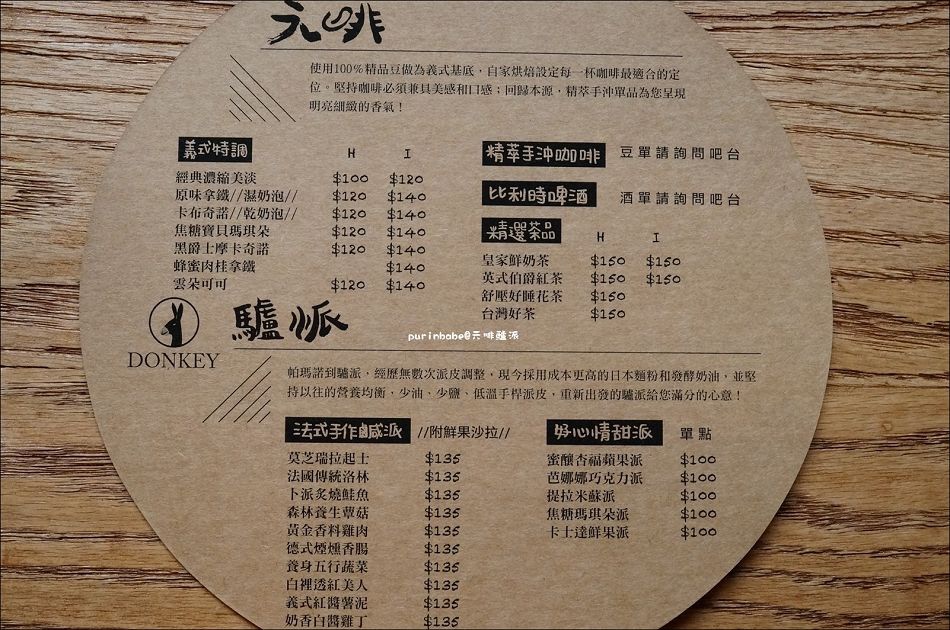 元啡
使用100%精品豆做為義式基底，自家烘焙設定每一杯咖啡最適合的定
位。堅持咖啡必須兼具美感和口感；回歸本源，精萃手沖單品為您呈現
明亮細緻的香氣！
義式特調 H I
經典濃縮美淡 $100 $120
原味拿鐵//濕奶泡// $120 $140
卡布奇諾//乾奶泡// $120 $140
焦糖寶貝瑪琪朵 $120 $140
黑爵士摩卡奇諾 $120 $140
蜂蜜肉桂拿鐵 $140
雲朵可可 $120 $140
精萃手沖咖啡 豆單請詢問吧台
比利時啤酒 酒單請詢問吧台
精選茶品 H I
皇家鮮奶茶 $150 $150
英式伯爵紅茶 $150 $150
舒壓好睡花茶 $150
台灣好茶 $150
DONKEY
驢派
purinbabe@元啡驢派
帕瑪諾到驢派，經歷無數次派皮調整，現今採用成本更高的日本麵粉和發酵奶油，並堅
持以往的營養均衡，少油、少鹽、低溫手桿派皮，重新出發的驢派給您滿分的心意！
法式手作鹹派 //附鮮果沙拉//
莫芝瑞拉起士 $135
法國傳統洛林 $135
卜派炙燒鮭魚 $135
森林養生蕈菇 $135
黃金香料雞肉 $135
德式煙燻香腸 $135
養身五行蔬菜 $135
白裡透紅美人 $135
義式紅醬薯泥 $135
奶香白醬雞丁 $135
好心情甜派 單點
蜜釀杏福蘋果派 $100
芭娜娜巧克力派 $100
提拉米蘇派 $100
焦糖瑪琪朵派 $100
卡士達鮮果派 $100